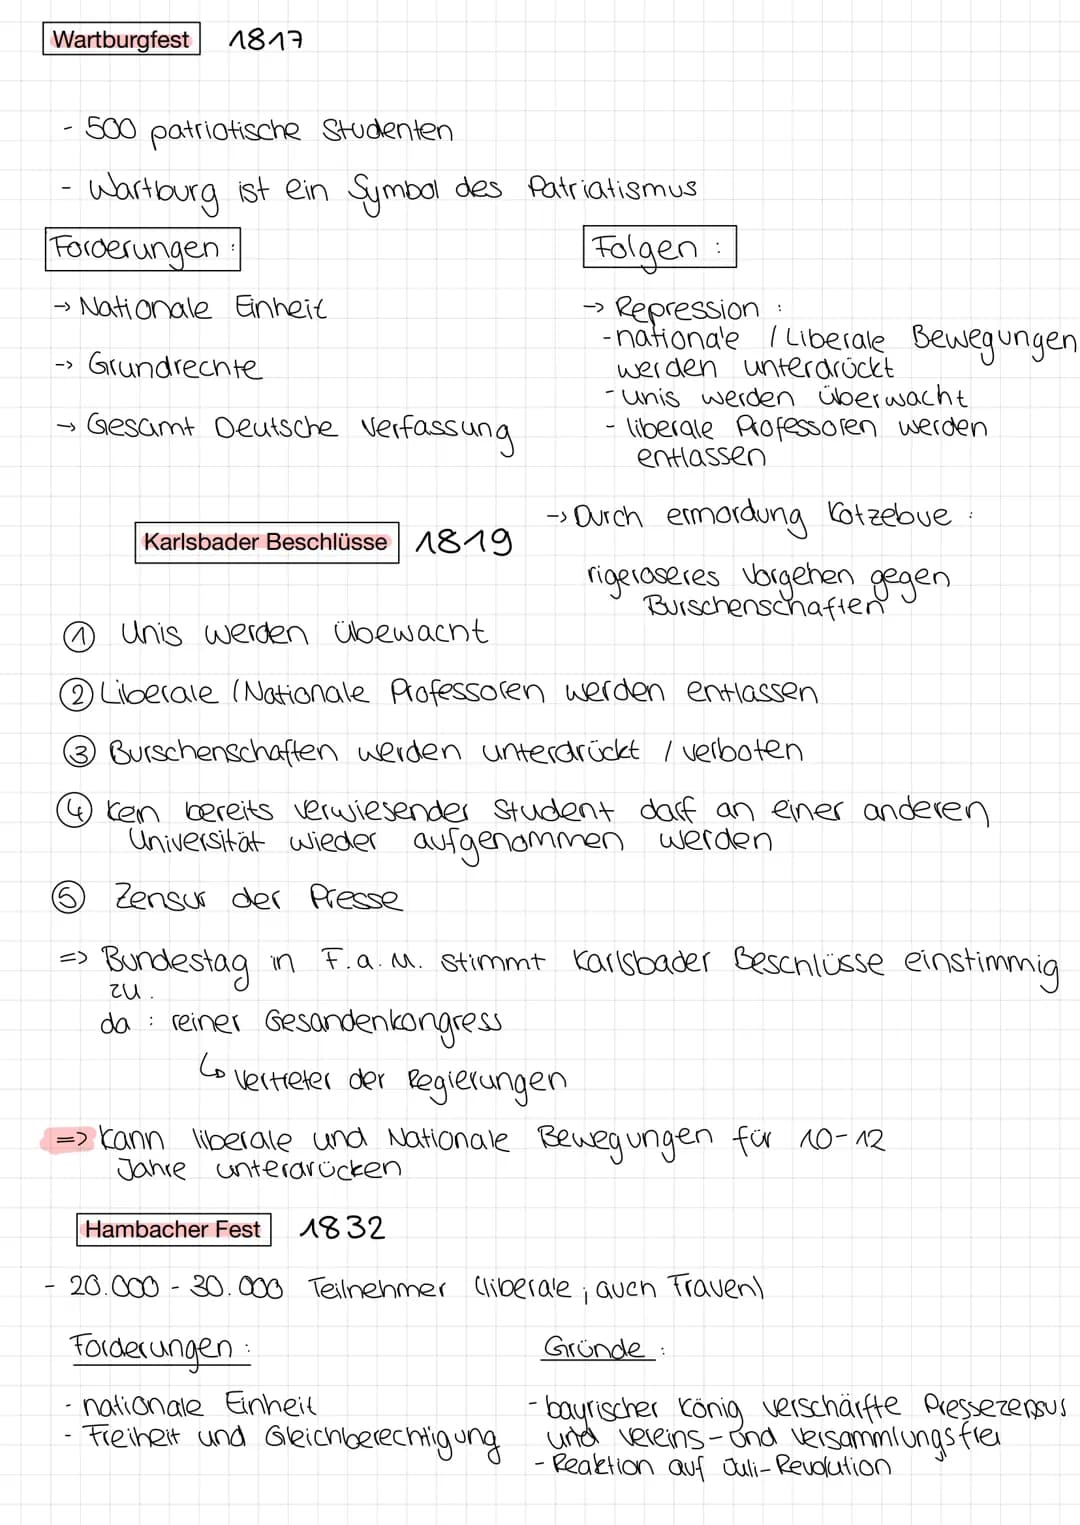 Wartburgfest 1817
- 500 patriotische Studenten
- Wartburg ist ein Symbol des Patriatismus
Forderungen :
→ Nationale Einheit
-> Grundrechte
→ Gesamt Deutsche Verfassung
Folgen :
-> Repression :
- nationale / Liberale Bewegungen
werden unterdrückt
- Unis werden überwacht
- liberale Professoren werden
entlassen
-> Durch ermordung Kotzebue :
rigeroseres Vorgehen gegen
Burschenschaften
Karlsbader Beschlüsse 1819
① Unis werden übewacht
② Liberale / Nationale Professoren werden entlassen
③ Burschenschaften werden unterdrückt / verboten
④ Kein bereits verwiesender Student darf an einer anderen
Universität wieder aufgenommen werden
⑤ Zensur der Presse
=> Bundestag in F.a.M. stimmt Karlsbader Beschlüsse einstimmig
zu.
da : reiner Gesandenkongress
↳ Vertreter der Regierungen
=> Kann liberale und Nationale Bewegungen für 10-12
Jahre unterdrücken
Hambacher Fest 1832
- 20.000 - 30.000 Teilnehmer (liberale ; auch Frauen)
Forderungen :
- nationale Einheit
- Freiheit und Gleichberechtigung
Gründe :
- bayrischer König verschärfte Pressezensus
und Vereins- und Versammlungsfrei
- Reaktion auf Juli-Revolution